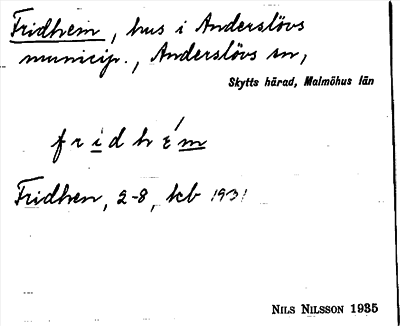 Fridhem, hus i Anderslövs
municip., Anderslövs sn,
Skytts härad, Malmöhus län
f r i d h é m
Fridhem, 2-8, kb 1931
NILS NILSSON 1935